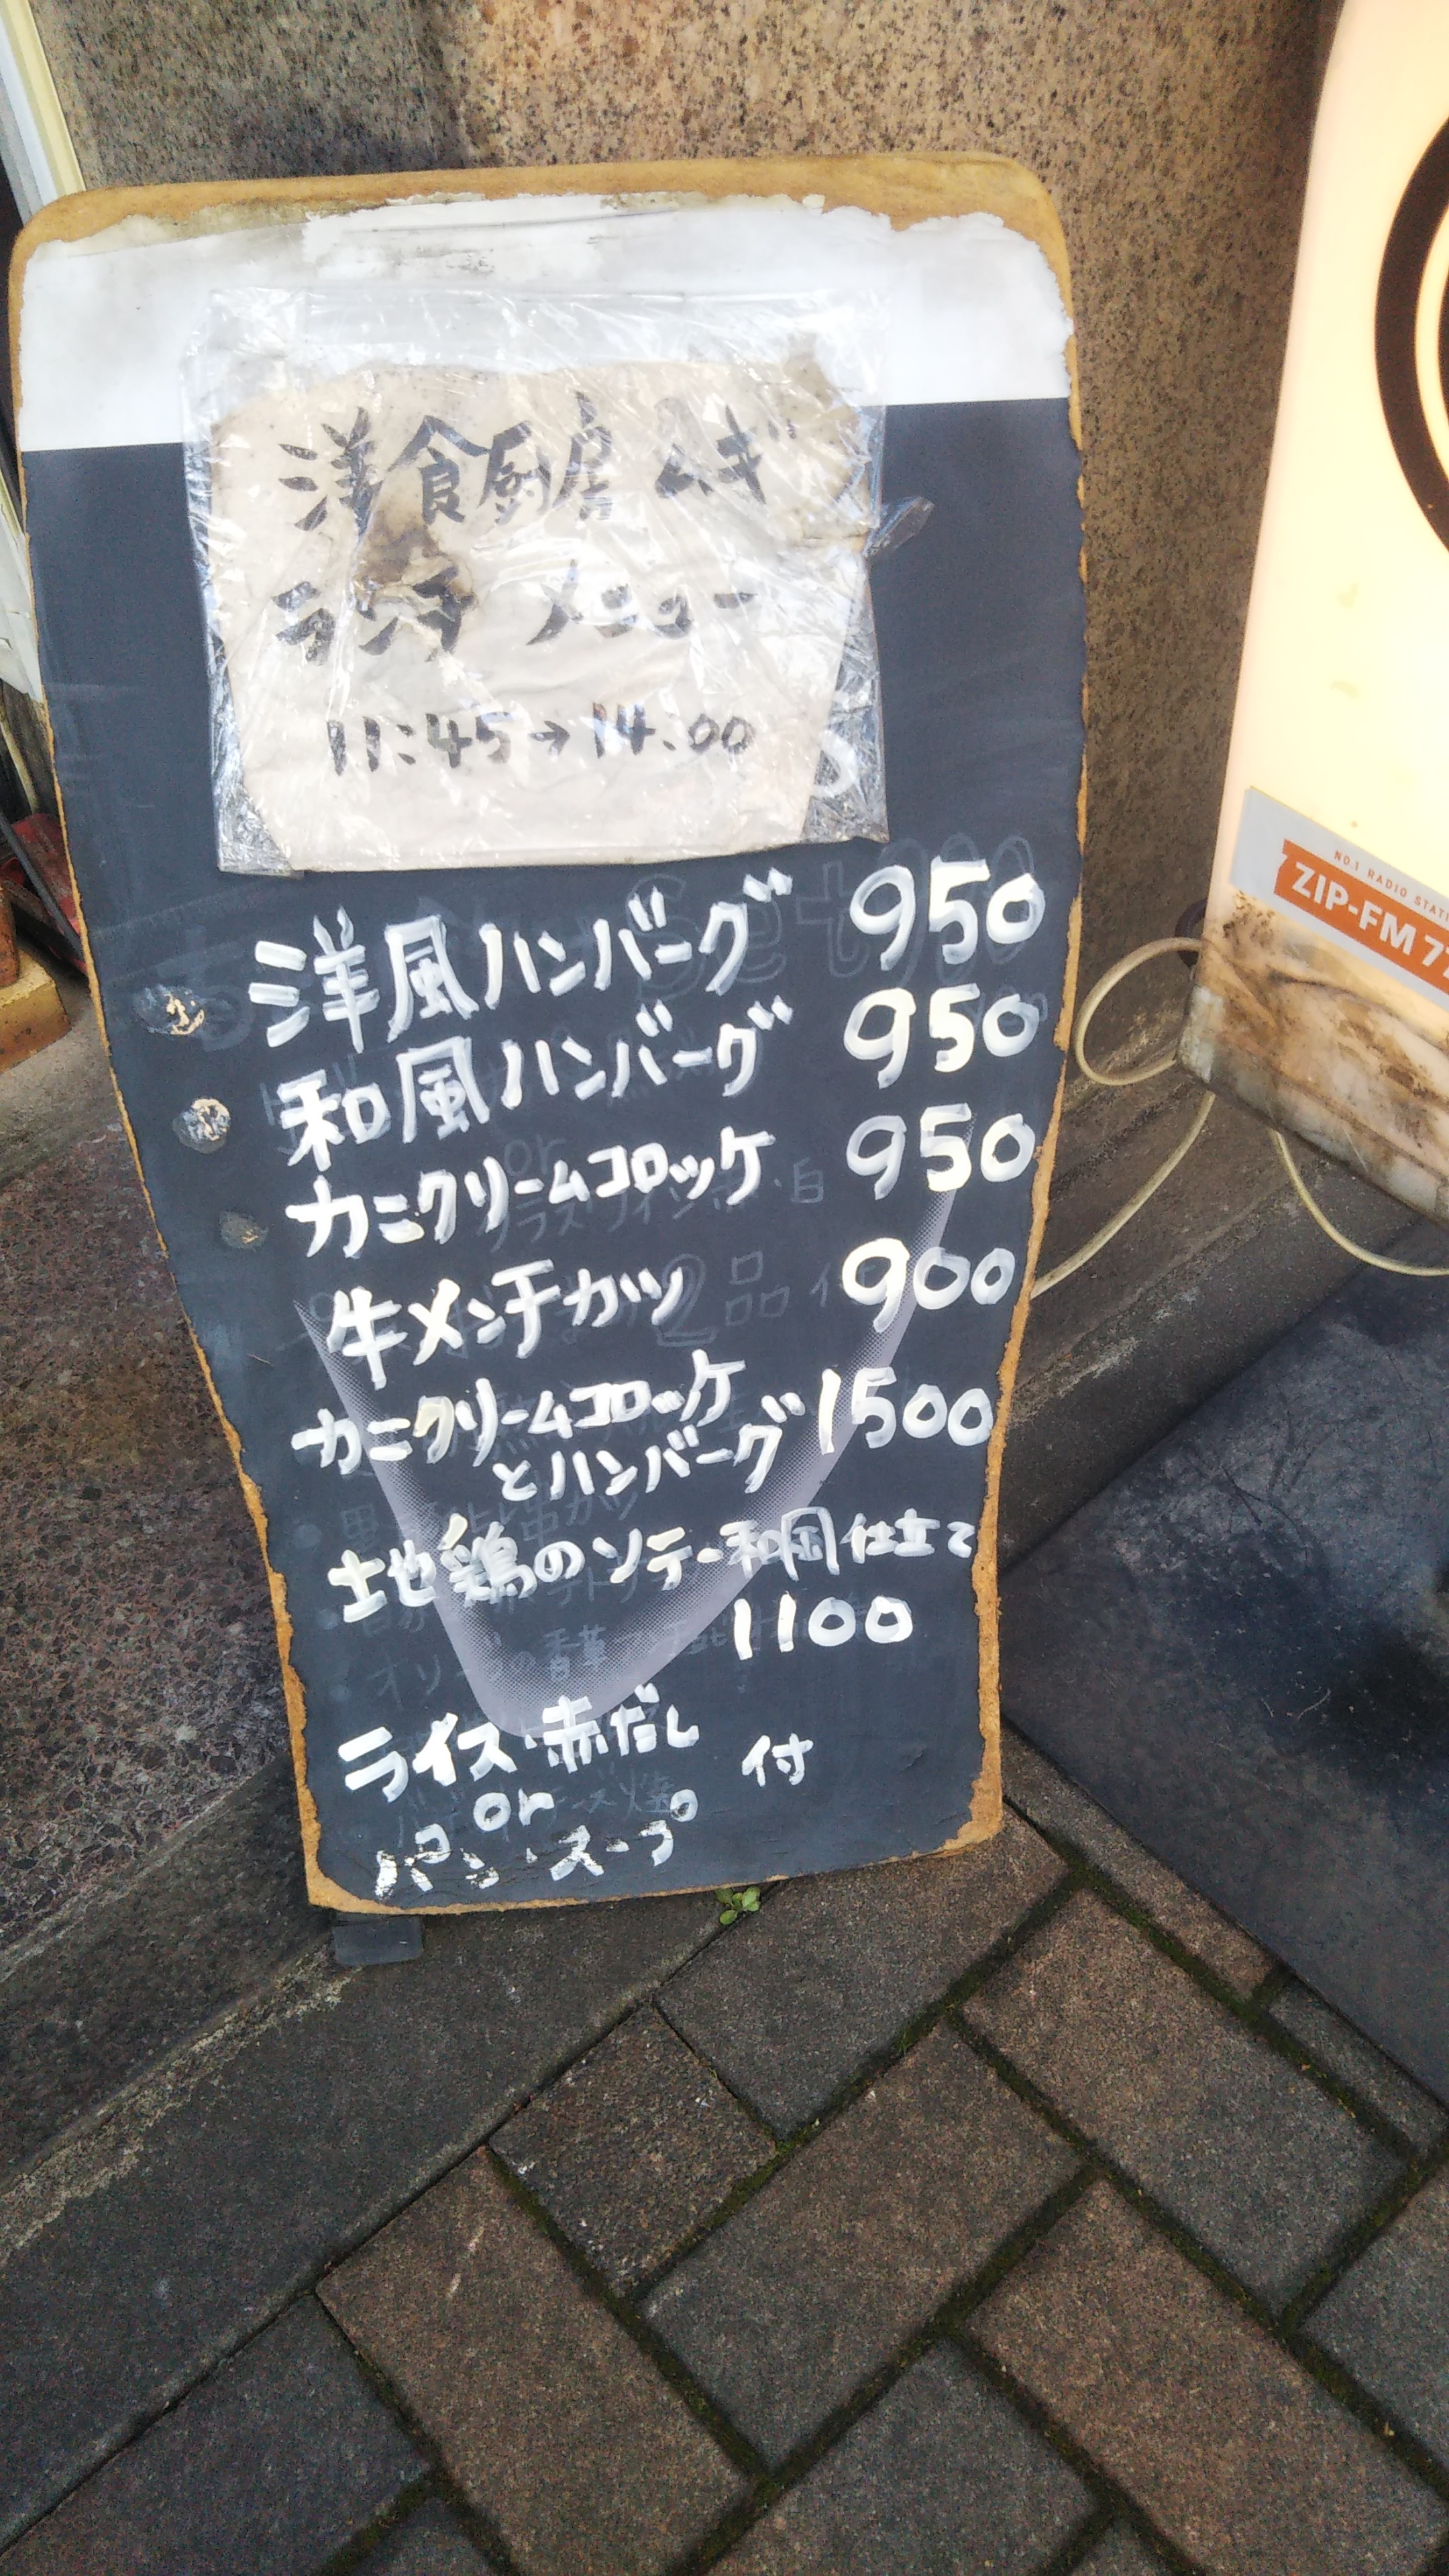 洋食厨房 ムギ
ランチ メニュー
11:45→14:00
洋風ハンバーグ 950
和風ハンバーグ 950
カニクリームコロッケ 950
牛メンチカツ 900
カニクリームコロッケ
とハンバーグ 1500
土地鶏のソテー和風仕立て
1100
ライス・赤だし
or 付
パン・スープ
NO.1 RADIO STAT
ZIP-FM 77